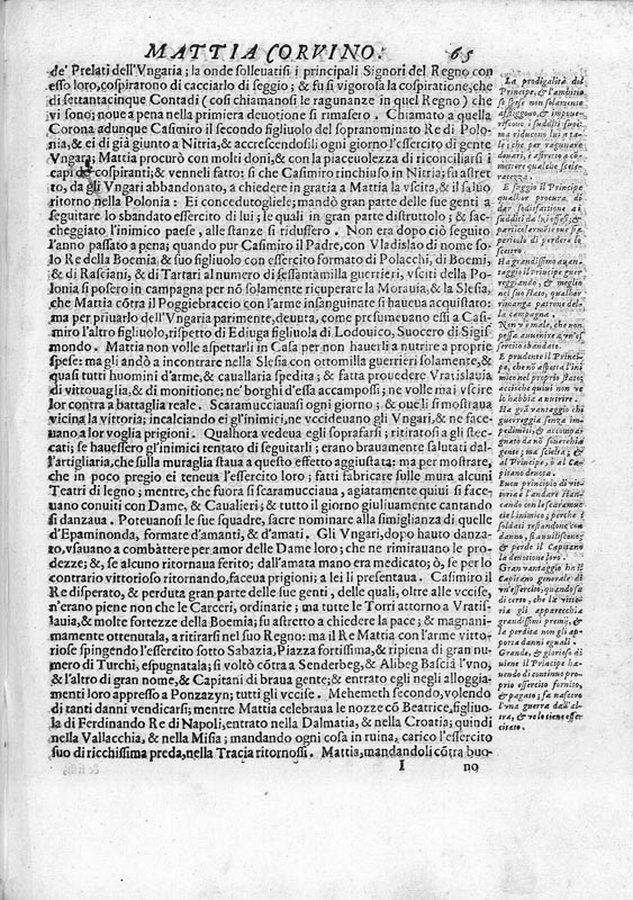 MATTIA CORVINO. 65
de' Prelati dell'Vngaria; la onde solleuatisi i principali Signori del Regno con
esso loro, cospirarono di cacciarlo di seggio; & fu si vigorosa la cospiratione, che
di settantacinque Contadi (così chiamanosi le ragunanze in quel Regno) che
vi sono; noue a pena nella primiera deuotione si rimasero. Chiamato a quella
Corona adunque Casimiro il secondo figliuolo del sopranominato Re di Polo-
nia, & ei di già giunto a Nitria, & accrescendosili ogni giorno l'essercito di gente
Vngara; Mattia procurò con molti doni, & con la piaceuolezza di riconciliarsi i
capi de' cospiranti; & venneli fatto; si che Casimiro rinchiuso in Nitria; fu astret
to, da gli Vngari abbandonato, a chiedere in gratia a Mattia la vscita, & il saluo
ritorno nella Polonia: Ei concedutogliele; mandò gran parte delle sue genti a
seguitare lo sbandato essercito di lui; le quali in gran parte distruttolo; & sac-
cheggiato l'inimico paese, alle stanze si ridussero. Non era dopo ciò seguito
l'anno passato a pena; quando pur Casimiro il Padre, con Vladislao di nome so-
lo Re della Boemia, & suo figliuolo con essercito formato di Polacchi, di Boemi,
& di Rasciani, & di Tartari al numero di sessantamilla guerrieri, vsciti della Po-
lonia si posero in campagna per nō solamente ricuperare la Morauia, & la Slesia,
che Mattia cōtra il Poggiebraccio con l'arme insanguinate si haueua acquistato:
ma per priuarlo dell'Vngaria parimente, deuuta, come presumeuano essi a Casi-
miro l'altro figliuolo, rispetto di Ediuga figliuola di Lodouico, Suocero di Sigis
mondo. Mattia non volle aspettarli in Casa per non hauerli a nutrire a proprie
spese: ma gli andò a incontrare nella Slesia con ottomilla guerrieri solamente, &
quasi tutti huomini d'arme, & cauallaria spedita; & fatta prouedere Vratislauia
di vittouaglia, & di monitione; ne' borghi d'essa accampossi; ne volle mai vscire
lor contra a battaglia reale. Scaramucciauasi ogni giorno; & oue li si mostraua
vicina la vittoria; incalciando ei gl'inimici, ne vccideuano gli Vngari, & ne face-
uano a lor voglia prigioni. Qualhora vedeua egli soprafarsi; ritiratosi a gli stec-
cati; se hauessero gl'inimici tentato di seguitarli; erano brauamente salutati dal-
l'artigliaria, che sulla muraglia staua a questo effetto aggiustata: ma per mostrare,
che in poco pregio ei teneua l'essercito loro; fatti fabricare sulle mura alcuni
Teatri di legno; mentre, che fuora si scaramucciaua, agiatamente quiui si face-
uano conuiti con Dame, & Caualieri; & tutto il giorno giuliuamente cantando
si danzaua. Poteuanosi le sue squadre, sacre nominare alla simiglianza di quelle
d'Epaminonda, formate d'amanti, & d'amati. Gli Vngari, dopo hauto danza-
to, vsauano a combàttere per amor delle Dame loro; che ne rimirauano le pro-
dezze; &, se alcuno ritornaua ferito; dall'amata mano era medicato; ò, se per lo
contrario vittorioso ritornando, faceua prigioni; a lei li presentaua. Casimiro il
Re disperato, & perduta gran parte delle sue genti, delle quali, oltre alle vccise,
n'erano piene non che le Carceri, ordinarie; ma tutte le Torri attorno a Vratis-
lauia, & molte fortezze della Boemia; fu astretto a chiedere la pace; & magnani-
mamente ottenutala, a ritirarsi nel suo Regno: ma il Re Mattia con l'arme vitto-
riose spingendo l'essercito sotto Sabazia, Piazza fortissima, & ripiena di gran nu-
mero di Turchi, espugnatala; si voltò cōtra a Senderbeg, & Alibeg Bascià l'vno,
& l'altro di gran nome, & Capitani di braua gente; & entrato egli negli alloggia-
menti loro appresso a Ponzazyn; tutti gli vccise. Mehemeth secondo, volendo
di tanti danni vendicarsi; mentre Mattia celebraua le nozze cō Beatrice, figliuo-
la di Ferdinando Re di Napoli, entrato nella Dalmatia, & nella Croatia; quindi
nella Vallacchia, & nella Misia; mandando ogni cosa in ruina, carico l'essercito
suo di ricchissima preda, nella Tracia ritornossi. Mattia, mandandoli cōtra buo-
I no
La prodigalità del
Principe, & l'ambitio
se spese non solamente
affliggono, & impoue-
riscono i sudditi suoi,
ma riducono lui a ta-
le; che per ragunar
denari, è astretto a cō-
mettere qualche scele-
ratezza.
E seggio il Principe
qualhor procura di
dar sodisfattione ai
sudditi da lui offesi, &
particolarmēte oue sia
pericolo di perdere lo
scetro.
Ha grandissimo auan-
taggio il principe guer
reggiando, & meglio
nel suo stato, qualhor
rimanga patrone del-
la campagna.
Non v'è male, che non
possa auuenire a vn'es-
sercito sbandato.
E prudente il Princi-
pe, che nō aspetta l'ini
mico nel proprio stato;
accioche quiui non ve
lo habbia a nutrire.
Ha grā vantaggio chi
guerreggia senza im-
pedimēti, & accompa-
gnato da nō souerchia
gente; ma scielta; & al
Principe, ò al Ca-
pitano deuota.
Buon principio di vit-
toria è l'andare stan-
cando con le scaramuc
cie l'inimico; perche i
soldati restandone con
danno, si auuiliscono;
& perde il Capitano
la deuotione loro.
Gran vantaggio ha il
Capitano generale di
vn'essercito, quando sa
di certo, che la vitto-
ria gli apparecchia
grandissimi premij, &
la perdita non gli ap-
porta danni eguali.
Grande, & glorioso di
uiene il Principe ha-
uendo di continuo pro-
prio essercito fornito,
& pagato; fa nascere
l'vna guerra dall'al-
tra, & volontieri esser
citato.